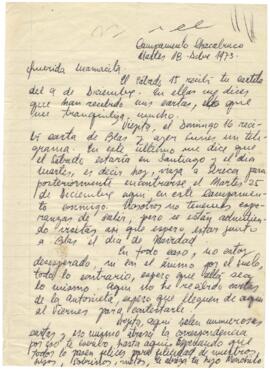 Campamento Chacabuco
Martes 18-Dcbre 1973.
Querida Mamacita:
El sábado 15 recibí tu cartita
del 9 de Diciembre. En ella me dices
que han recibido mis cartas, lo que
me tranquiliza mucho.
el Domingo 16 reci
bí carta de Blas y ayer lunes un tele
grama. En este último me dice que
el Sábado estaría en Santiago y el día
Martes, es decir hoy, viaja a Arica para
posteriormente encontrarse el Martes 25
de diciembre aquí en este Campamen
to conmigo. Nosotros no tenemos espe
ranzas de salir, pero se están admitien
do visitas así que espero estar junto
a Blas el día de Navidad.
En todo caso, no estoy
desesperado, ni con el ánimo por el suelo,
todo lo contrario, espero que Uds. sea
lo mismo. Aquí no he recibido cartas
de la Antonieta, espero que lleguen de aquí
al Viernes para contestarle.
aquí salen numerosas
cartas y no mismo la correspondencia
por eso te escribo, hasta aquí esperando que
todos lo pasen felices para felicidad de nuestros
hijos, sobrinos, nietos, te abraza tu hijo